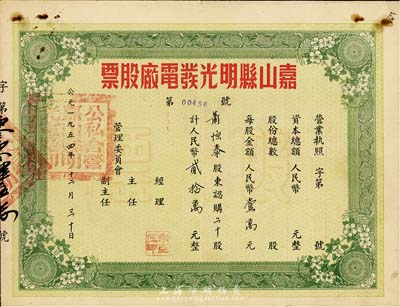 嘉山縣明光發電廠股票
第 00456 號
營業執照 字第 號
資本總額人民幣 元整
股份總數 股
每股金額人民幣壹萬元
股東認購二十股
計人民幣貳拾萬元整
管理委員會
經理
主任
副主任
公元一九五四年十二月三十日
字第 號
公私合營